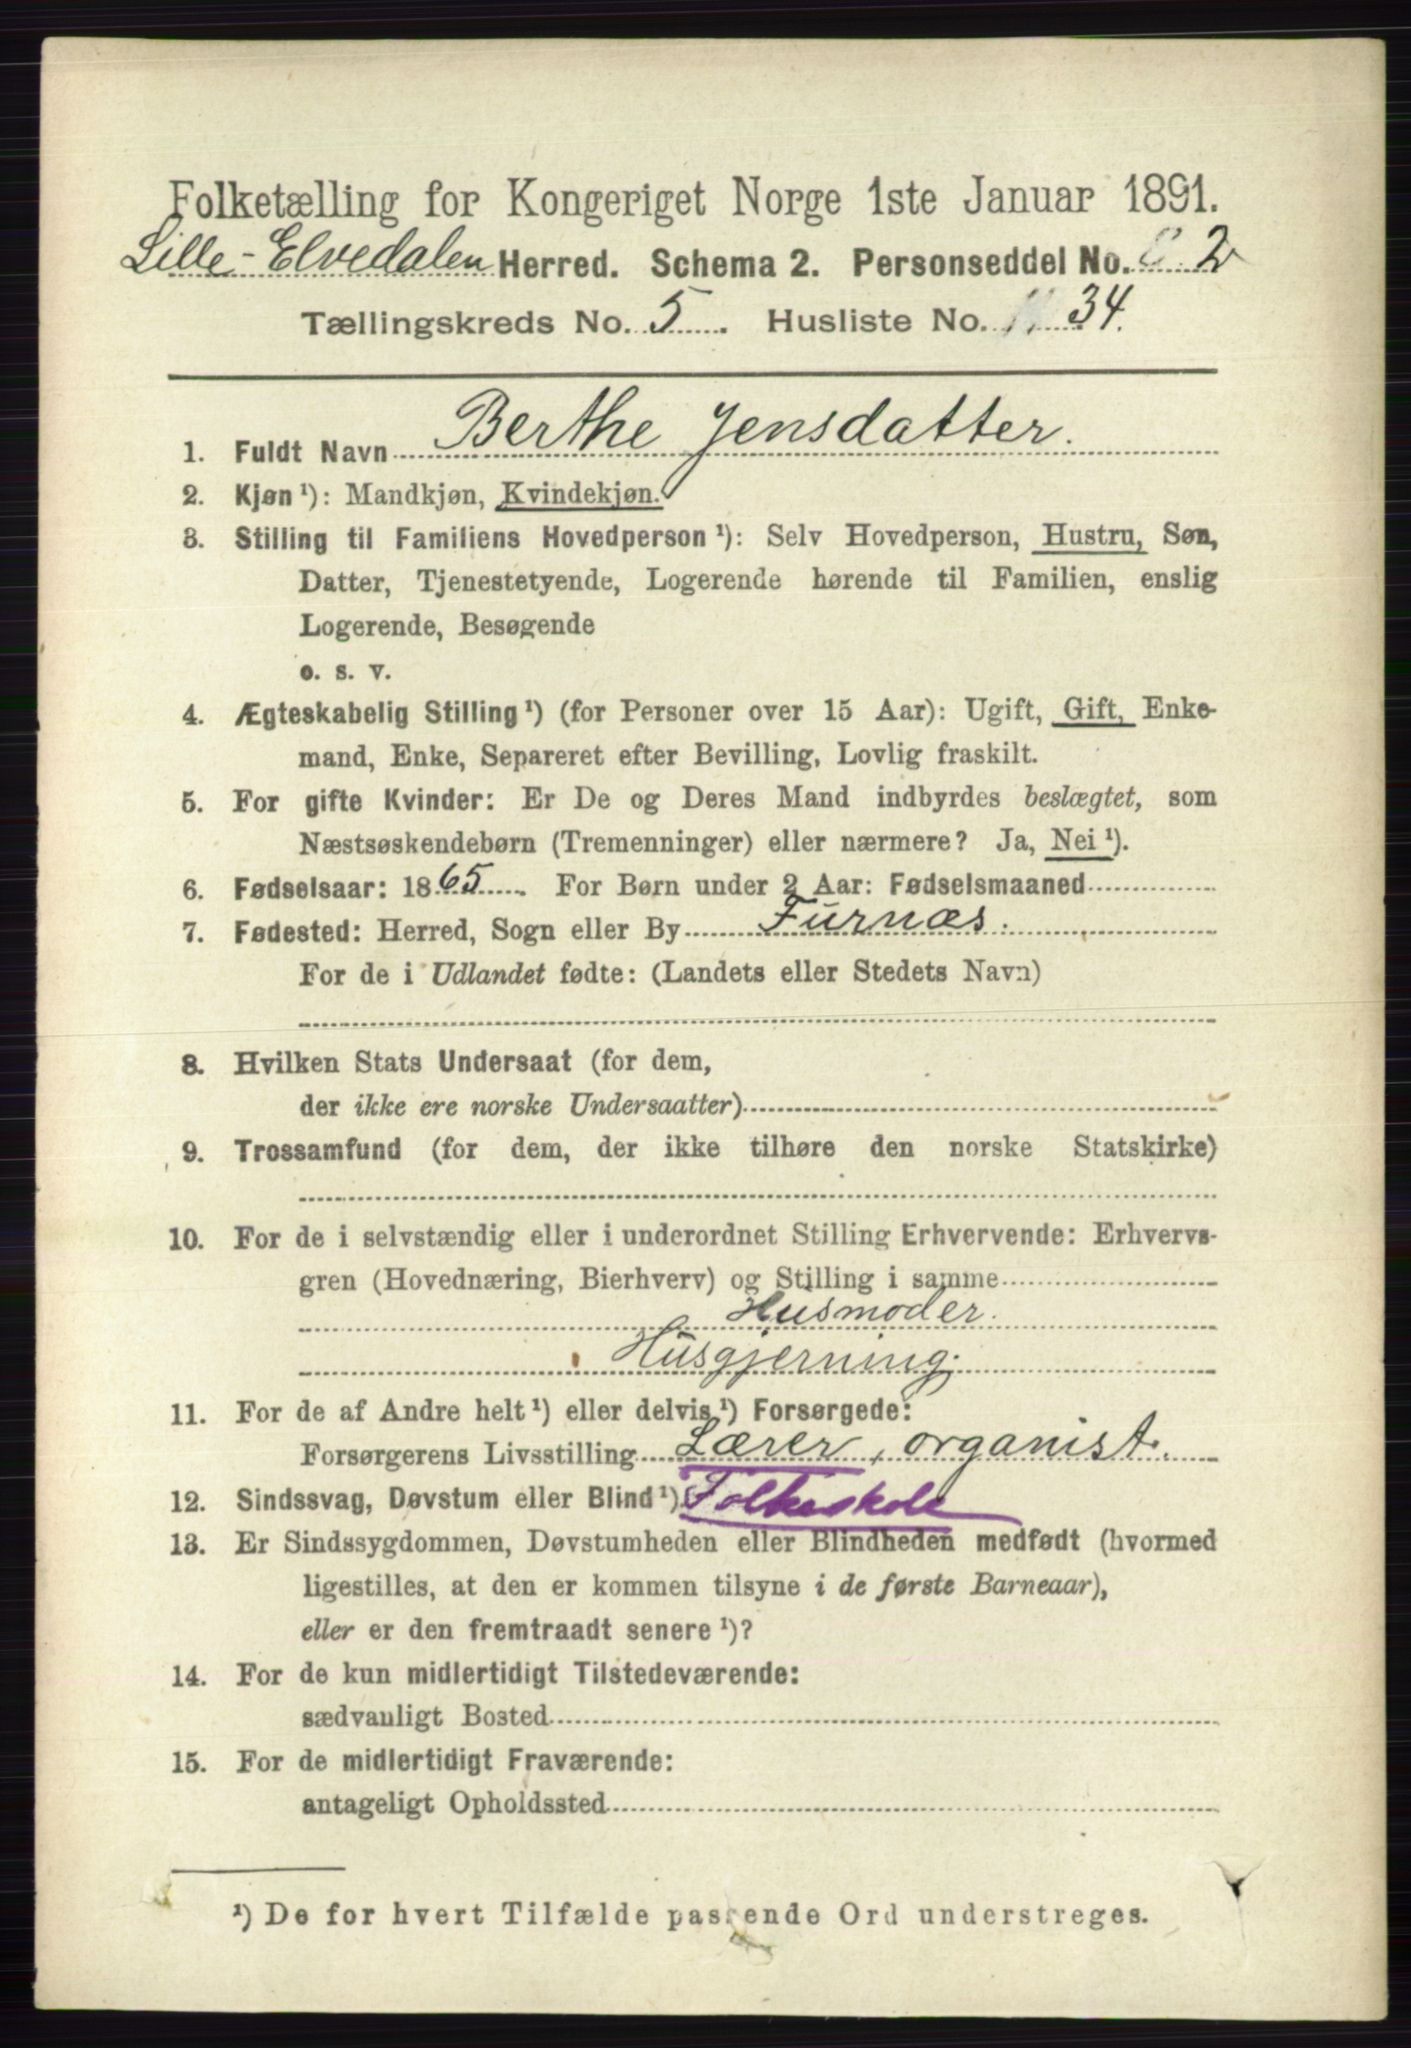 Folketælling for Kongeriget Norge 1ste Januar 1891.
Lille-Elvedalen Herred. Schema 2. Personseddel No. 2
Tællingskreds No. 5. Husliste No. 34.
1. Fuldt Navn Berthe Jensdatter.
2. Kjøn ¹): Mandkjøn, Kvindekjøn.
3. Stilling til Familiens Hovedperson ¹): Selv Hovedperson, Hustru, Søn,
Datter, Tjenestetyende, Logerende hørende til Familien, enslig
Logerende, Besøgende
o. s. v.
4. Ægteskabelig Stilling ¹) (for Personer over 15 Aar): Ugift, Gift, Enke-
mand, Enke, Separeret efter Bevilling, Lovlig fraskilt.
5. For gifte Kvinder: Er De og Deres Mand indbyrdes beslægtet, som
Næstsøskendebørn (Tremenninger) eller nærmere? Ja, Nei ¹).
6. Fødselsaar: 1865. For Børn under 2 Aar: Fødselsmaaned
7. Fødested: Herred, Sogn eller By Furnæs.
For de i Udlandet fødte: (Landets eller Stedets Navn)
8. Hvilken Stats Undersaat (for dem,
der ikke ere norske Undersaatter)
9. Trossamfund (for dem, der ikke tilhøre den norske Statskirke)
10. For de i selvstændig eller i underordnet Stilling Erhvervende: Erhvervs-
gren (Hovednæring, Bierhverv) og Stilling i samme
Husmoder.
Husgjerning.
11. For de af Andre helt ¹) eller delvis ¹) Forsørgede:
Forsørgerens Livsstilling Lærer, organist.
12. Sindssvag, Døvstum eller Blind ¹). Folkeskole
13. Er Sindssygdommen, Døvstumheden eller Blindheden medfødt (hvormed
ligestilles, at den er kommen tilsyne i de første Barneaar),
eller er den fremtraadt senere ¹)?
14. For de kun midlertidigt Tilstedeværende:
sædvanligt Bosted
15. For de midlertidigt Fraværende:
antageligt Opholdssted
¹) De for hvert Tilfælde passende Ord understreges.